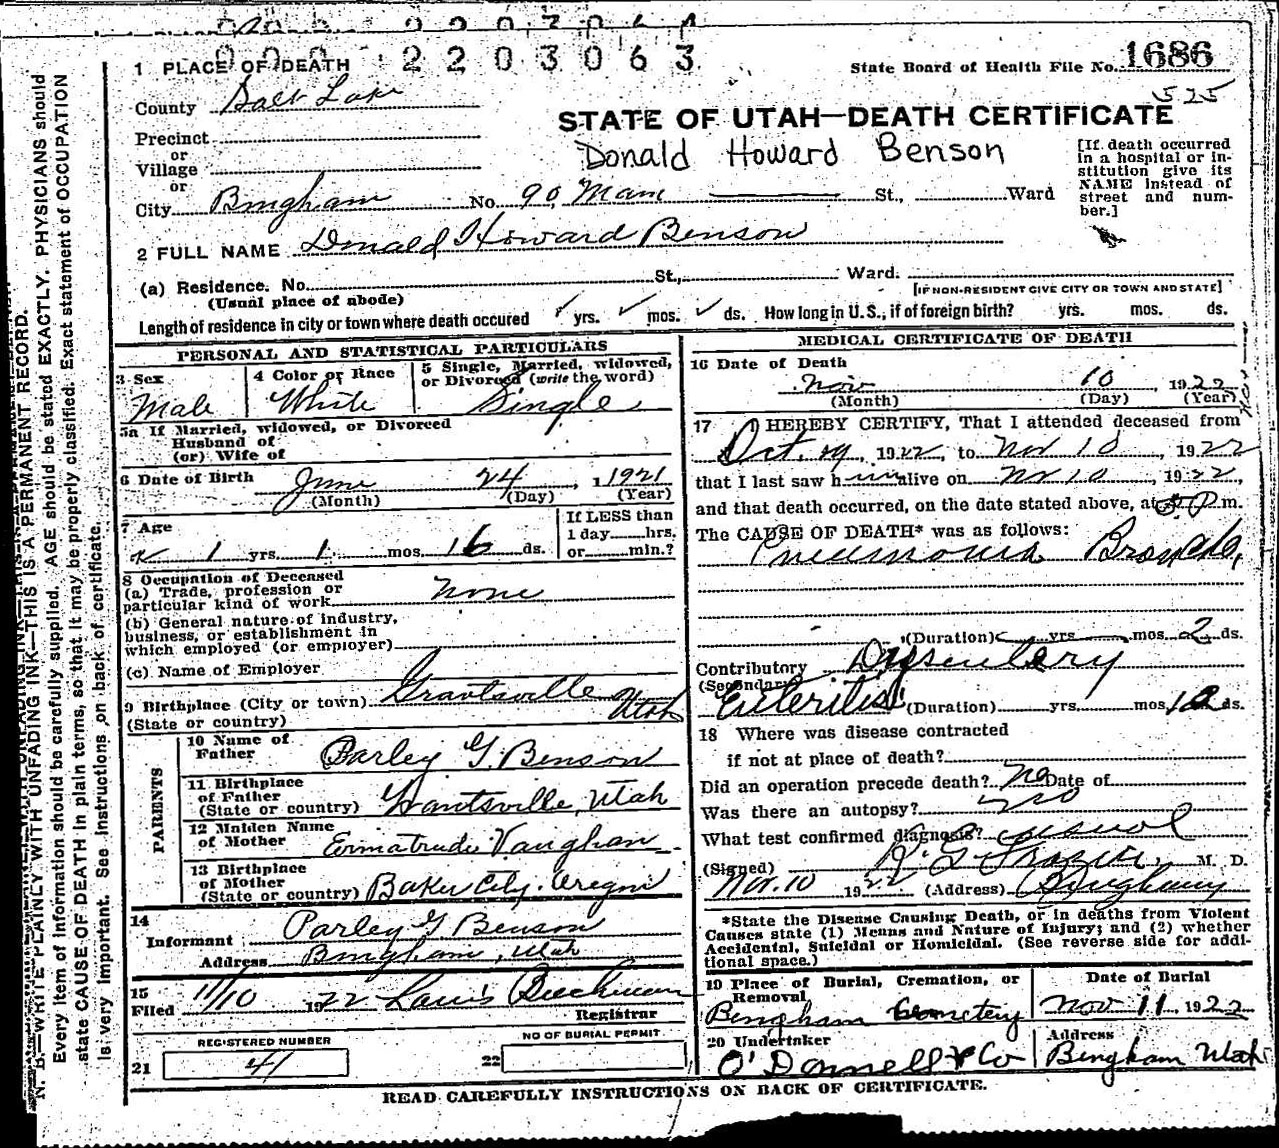 0 0 0 2 2 0 3 0 6 3
1 PLACE OF DEATH
State Board of Health File No. 1686
525
County Salt Lake
STATE OF UTAH—DEATH CERTIFICATE
Precinct
or
Village
or
Donald Howard Benson
[If death occurred
in a hospital or in-
stitution give its
NAME instead of
street and num-
ber.]
City Bingham No. 90 Main St., Ward
2 FULL NAME Donald Howard Benson
(a) Residence. No. St., Ward.
(Usual place of abode)
[IF NON-RESIDENT GIVE CITY OR TOWN AND STATE]
Length of residence in city or town where death occured yrs. mos. ds. How long in U. S., if of foreign birth? yrs. mos. ds.
PERSONAL AND STATISTICAL PARTICULARS
3 Sex
Male
4 Color or Race
White
5 Single, Married, widowed,
or Divorced (write the word)
Single
5a If Married, widowed, or Divorced
Husband of
(or) Wife of
6 Date of Birth June 24, 1921
(Month) (Day) (Year)
7 Age
1 yrs. 1 mos. 16 ds.
If LESS than
1 day hrs.
or min.?
8 Occupation of Deceased
(a) Trade, profession or
particular kind of work None
(b) General nature of industry,
business, or establishment in
which employed (or employer)
(c) Name of Employer
9 Birthplace (City or town) Grantsville Utah
(State or country)
PARENTS
10 Name of
Father Parley G. Benson
11 Birthplace
of Father
(State or country) Grantsville, Utah
12 Maiden Name
of Mother Ermatrude Vaughan
13 Birthplace
of Mother
(State or country) Baker City. Oregon
14
Informant Parley G Benson
Address Bingham, Utah
15
Filed 11/10 1922 Louis Buchman
Registrar
REGISTERED NUMBER
21 41
NO OF BURIAL PERMIT
22
MEDICAL CERTIFICATE OF DEATH
16 Date of Death
Nov 10, 1922
(Month) (Day) (Year)
17 I HEREBY CERTIFY, That I attended deceased from
Oct. 19, 1922, to Nov 10, 1922
that I last saw him alive on Nov 10, 1922,
and that death occurred, on the date stated above, at 5 P m.
The CAUSE OF DEATH* was as follows:
Pneumonia Broncho,
(Duration) yrs. mos. 2 ds.
Contributory Dysentery
(Secondary) Enteritis (Duration) yrs. mos. ds.
18 Where was disease contracted
if not at place of death?
Did an operation precede death? No Date of
Was there an autopsy? No
What test confirmed diagnosis?
(Signed) R. G. Frazier, M. D.
Nov. 10 1922 (Address) Bingham
*State the Disease Causing Death, or in deaths from Violent
Causes state (1) Means and Nature of Injury; and (2) whether
Accidental, Suicidal or Homicidal. (See reverse side for addi-
tional space.)
19 Place of Burial, Cremation, or
Removal
Bingham Cemetery
Date of Burial
Nov 11, 1922
20 Undertaker
O'Donnell & Co
Address
Bingham Utah
READ CAREFULLY INSTRUCTIONS ON BACK OF CERTIFICATE.
N. B.—WRITE PLAINLY WITH UNFADING INK—THIS IS A PERMANENT RECORD.
Every item of information should be carefully supplied. AGE should be stated EXACTLY. PHYSICIANS should
state CAUSE OF DEATH in plain terms, so that it may be properly classified. Exact statement of OCCUPATION
is very important. See instructions on back of certificate.